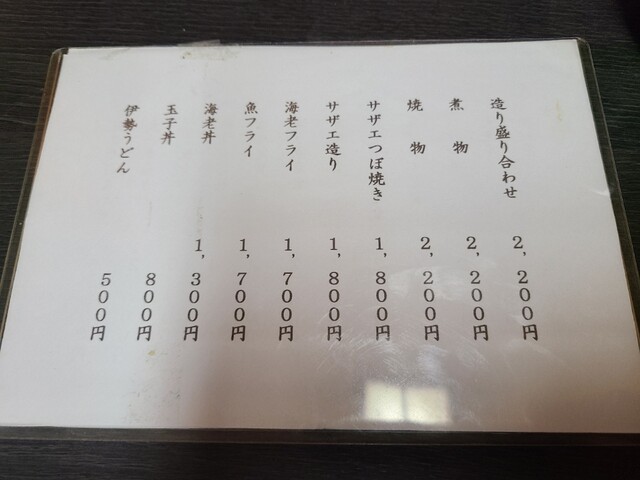 造り盛り合わせ 2,200円
煮物 2,200円
焼物 2,200円
サザエつぼ焼き 1,800円
サザエ造り 1,800円
海老フライ 1,700円
魚フライ 1,700円
海老丼 1,300円
玉子丼 800円
伊勢うどん 500円